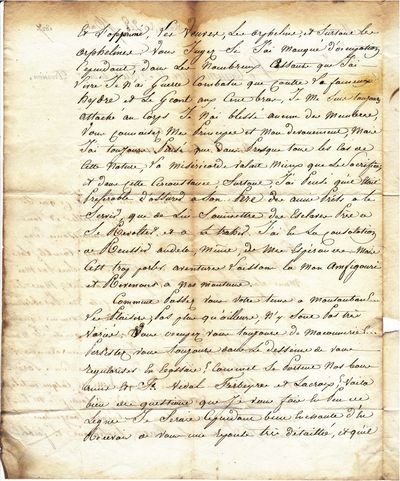 Et l'opprimé, Les Veuves, Les orphelins, et Surtout Les
orphelines. Vous Jugez Si J'ai Manqué d'occupation
Cependant, dans Les Nombreux assauts que J'ai
Livré Je N'ai Guerre Combatu que Contre La fameux
hydre et Le Géant aux Cent bras, Je Me Suis toujours
attaché au Corps Je N'ai blessé aucun des Membres,
Vous Connaissez Mes Principes et Mon devouement, Mais
J'ai toujours Pensé que dans Presque tous Les Cas de
Cette Nature, La Misericorde Valait Mieux que Le Sacrifice,
et dans Cette Circonstance, Surtout J'ai Pensé qu'il était
Preferable d'assurer a Son Père des amis Prêts a le
Servir, que de Lui Soumettre des Esclaves Prêts a
Se Revolter et a Le trahir. J'ai Eu La Consolation
de Reussir audela Même de Mes Espérances. Mais
C'est trop parler aventure Laissons La Mon Amfigouri
et Revenons a Nos moutons.
Comment Passez vous Votre tems a Montauban?
Les Plaisirs, pas plus qu'ailleurs, N'y Sont Pas très
Variés. Vous occupez vous toujours de Maçonnerie?
Persistez vous toujours dans Le dessein de vous
regulariser en Ecossais? Comment Se Portent Nos bons
Amis St. Vidal Tarbeyre et Lacroix? Voila
bien des questions que Je vous fais en peu de
Ligne Je Serais Cependant bien Content de
Recevoir de vous une reponse très détaillée, et que